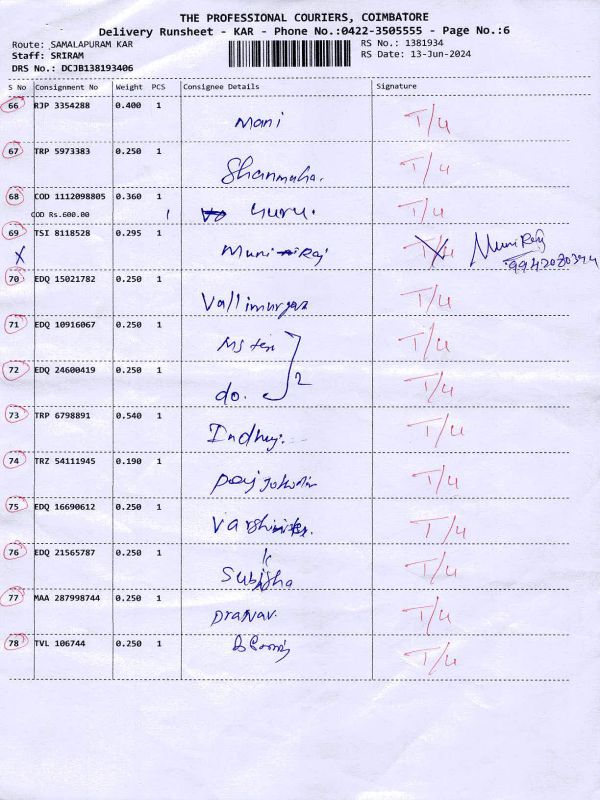 THE PROFESSIONAL COURIERS, COIMBATORE
Delivery Runsheet - KAR - Phone No.:0422-3505555 - Page No.:6
Route: SAMALAPURAM KAR
RS No.: 1381934
Staff: SRIRAM
RS Date: 13-Jun-2024
DRS No.: DCJB138193406
S No Consignment No Weight PCS Consignee Details Signature
66 RJP 3354288 0.400 1 Mani T/u
67 TRP 5973383 0.250 1 Shanmuha. T/u
68 COD 1112098805 0.360 1 Guru. T/u
COD Rs.600.00 1
69 TSI 8118528 0.295 1 Muni Raj T/u Muni Raj
X 9942080394
70 EDQ 15021782 0.250 1 Vallimurgan T/u
71 EDQ 10916067 0.250 1 T/u
72 EDQ 24600419 0.250 1 do. 2 T/u
73 TRP 6798891 0.540 1 T/u
74 TRZ 54111945 0.190 1 T/u
75 EDQ 16690612 0.250 1 T/u
76 EDQ 21565787 0.250 1 Subisha T/u
77 MAA 287998744 0.250 1 Pranav. T/u
78 TVL 106744 0.250 1 T/u